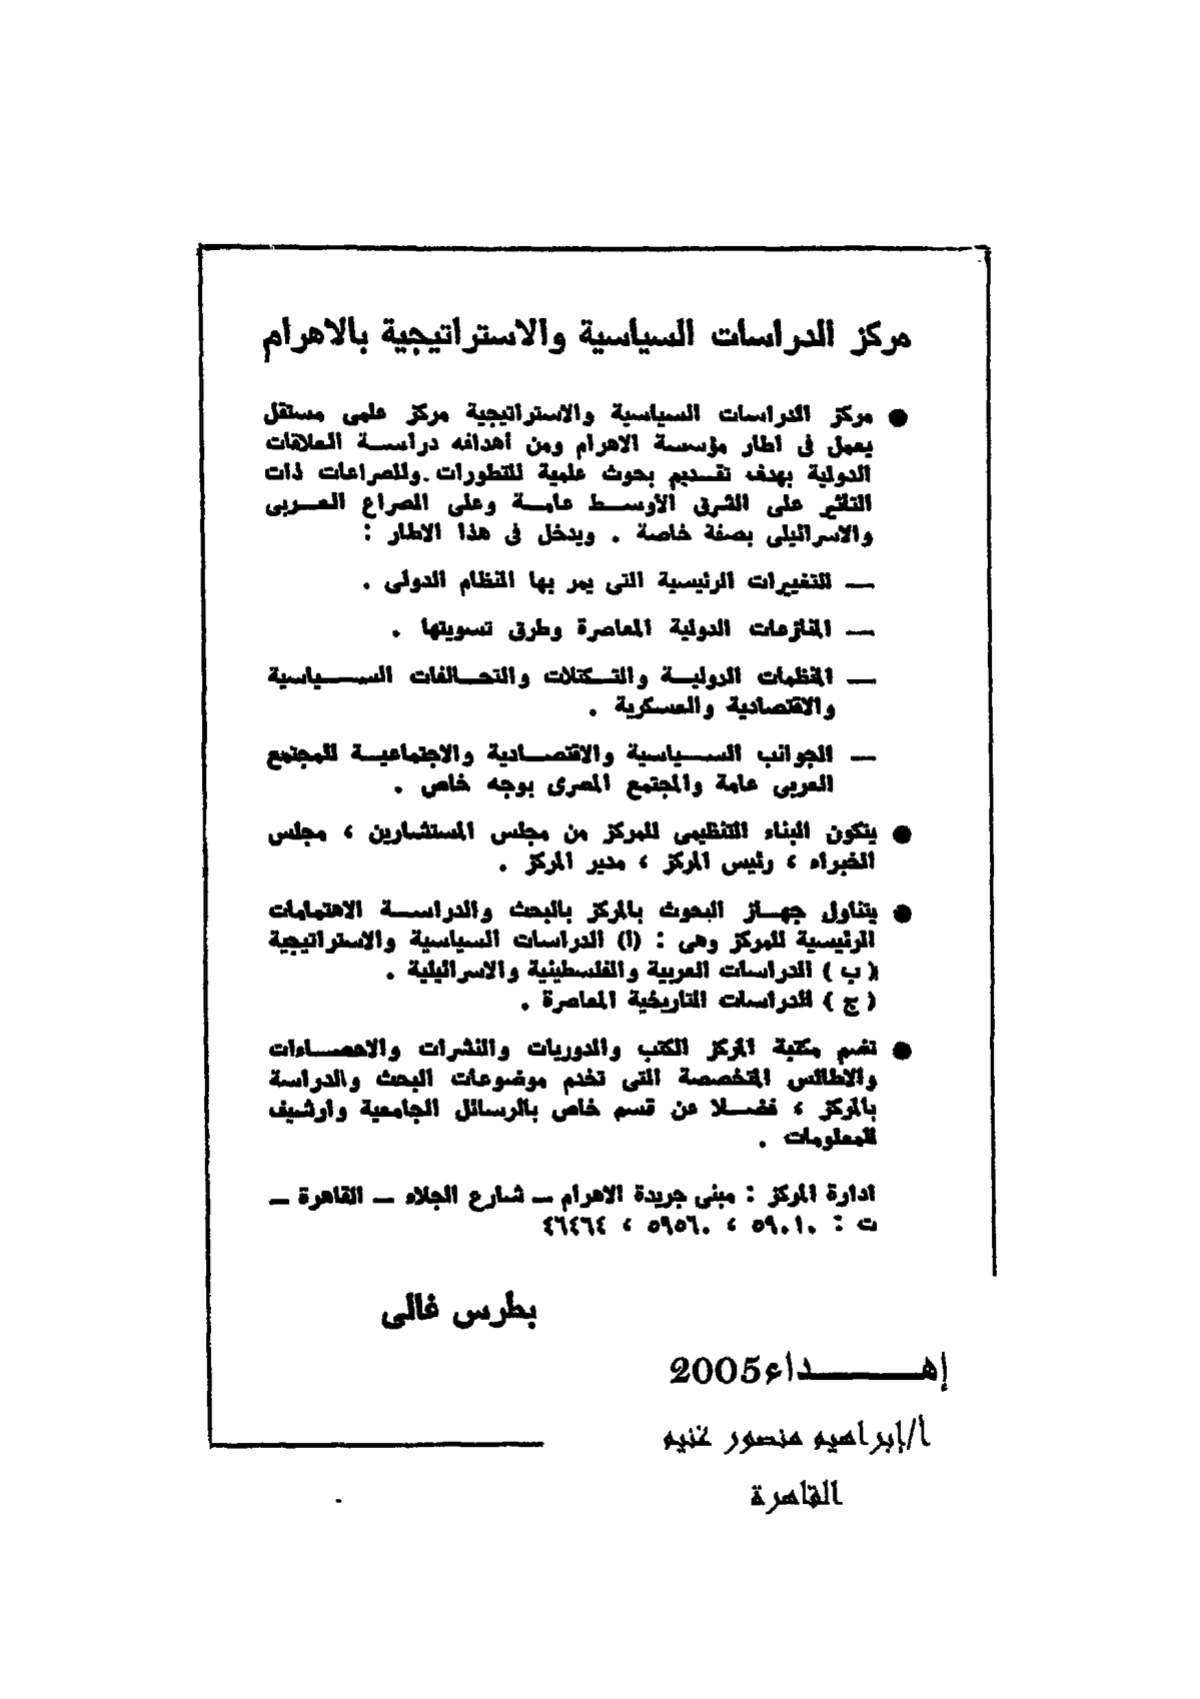 مركز الدراسات السياسية والاستراتيجية بالاهرام
● مركز الدراسات السياسية والاستراتيجية مركز علمى مستقل
يعمل فى اطار مؤسسة الاهرام ومن اهدافه دراسة العلاقات
الدولية بهدف تقديم بحوث علمية للتطورات والصراعات ذات
التأثير على الشرق الاوسط عامة وعلى الصراع العربى
والاسرائيلى بصفة خاصة . ويدخل فى هذا الاطار :
— التغييرات الرئيسية التى يمر بها النظام الدولى .
— المنازعات الدولية المعاصرة وطرق تسويتها .
— المنظمات الدولية والتكتلات والتحالفات السياسية
والاقتصادية والعسكرية .
— الجوانب السياسية والاقتصادية والاجتماعية للمجتمع
العربى عامة والمجتمع المصرى بوجه خاص .
● يتكون البناء التنظيمى للمركز من مجلس المستشارين ، مجلس
الخبراء ، رئيس المركز ، مدير المركز .
● يتناول جهاز البحوث بالمركز بالبحث والدراسة الاهتمامات
الرئيسية للمركز وهى : (ا) الدراسات السياسية والاستراتيجية
( ب ) الدراسات العربية والفلسطينية والاسرائيلية .
( ج ) الدراسات التاريخية المعاصرة .
● تضم مكتبة المركز الكتب والدوريات والنشرات والاحصاءات
والاطالس المتخصصة التى تخدم موضوعات البحث والدراسة
بالمركز ، فضلا عن قسم خاص بالرسائل الجامعية وارشيف
للمعلومات .
ادارة المركز : مبنى جريدة الاهرام — شارع الجلاء — القاهرة —
ت : ٥٩٠١٠ ، ٥٩٥٦٠ ، ٤٦٤٦٤
بطرس غالى
إهـــداء2005
أ/إبراهيم منصور غنيم
القاهرة